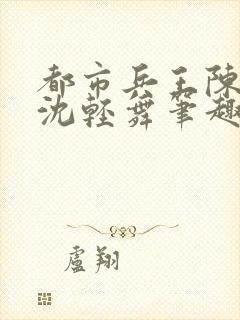 都市兵王陳
沈輕舞筆趣
盧翔